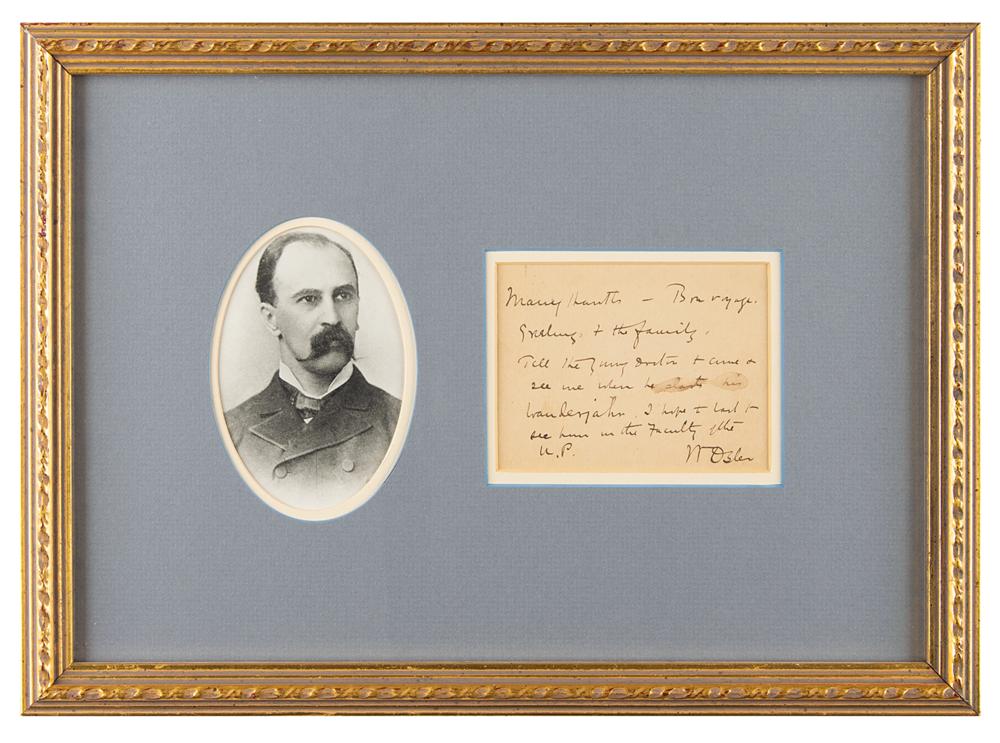 Many thanks – Bon voyage.
Greetings to the family.
Tell the young doctor to come &
see me when he starts his
wanderjahr. I hope to last to
see him in the Faculty of the
U.P.
Wm Osler